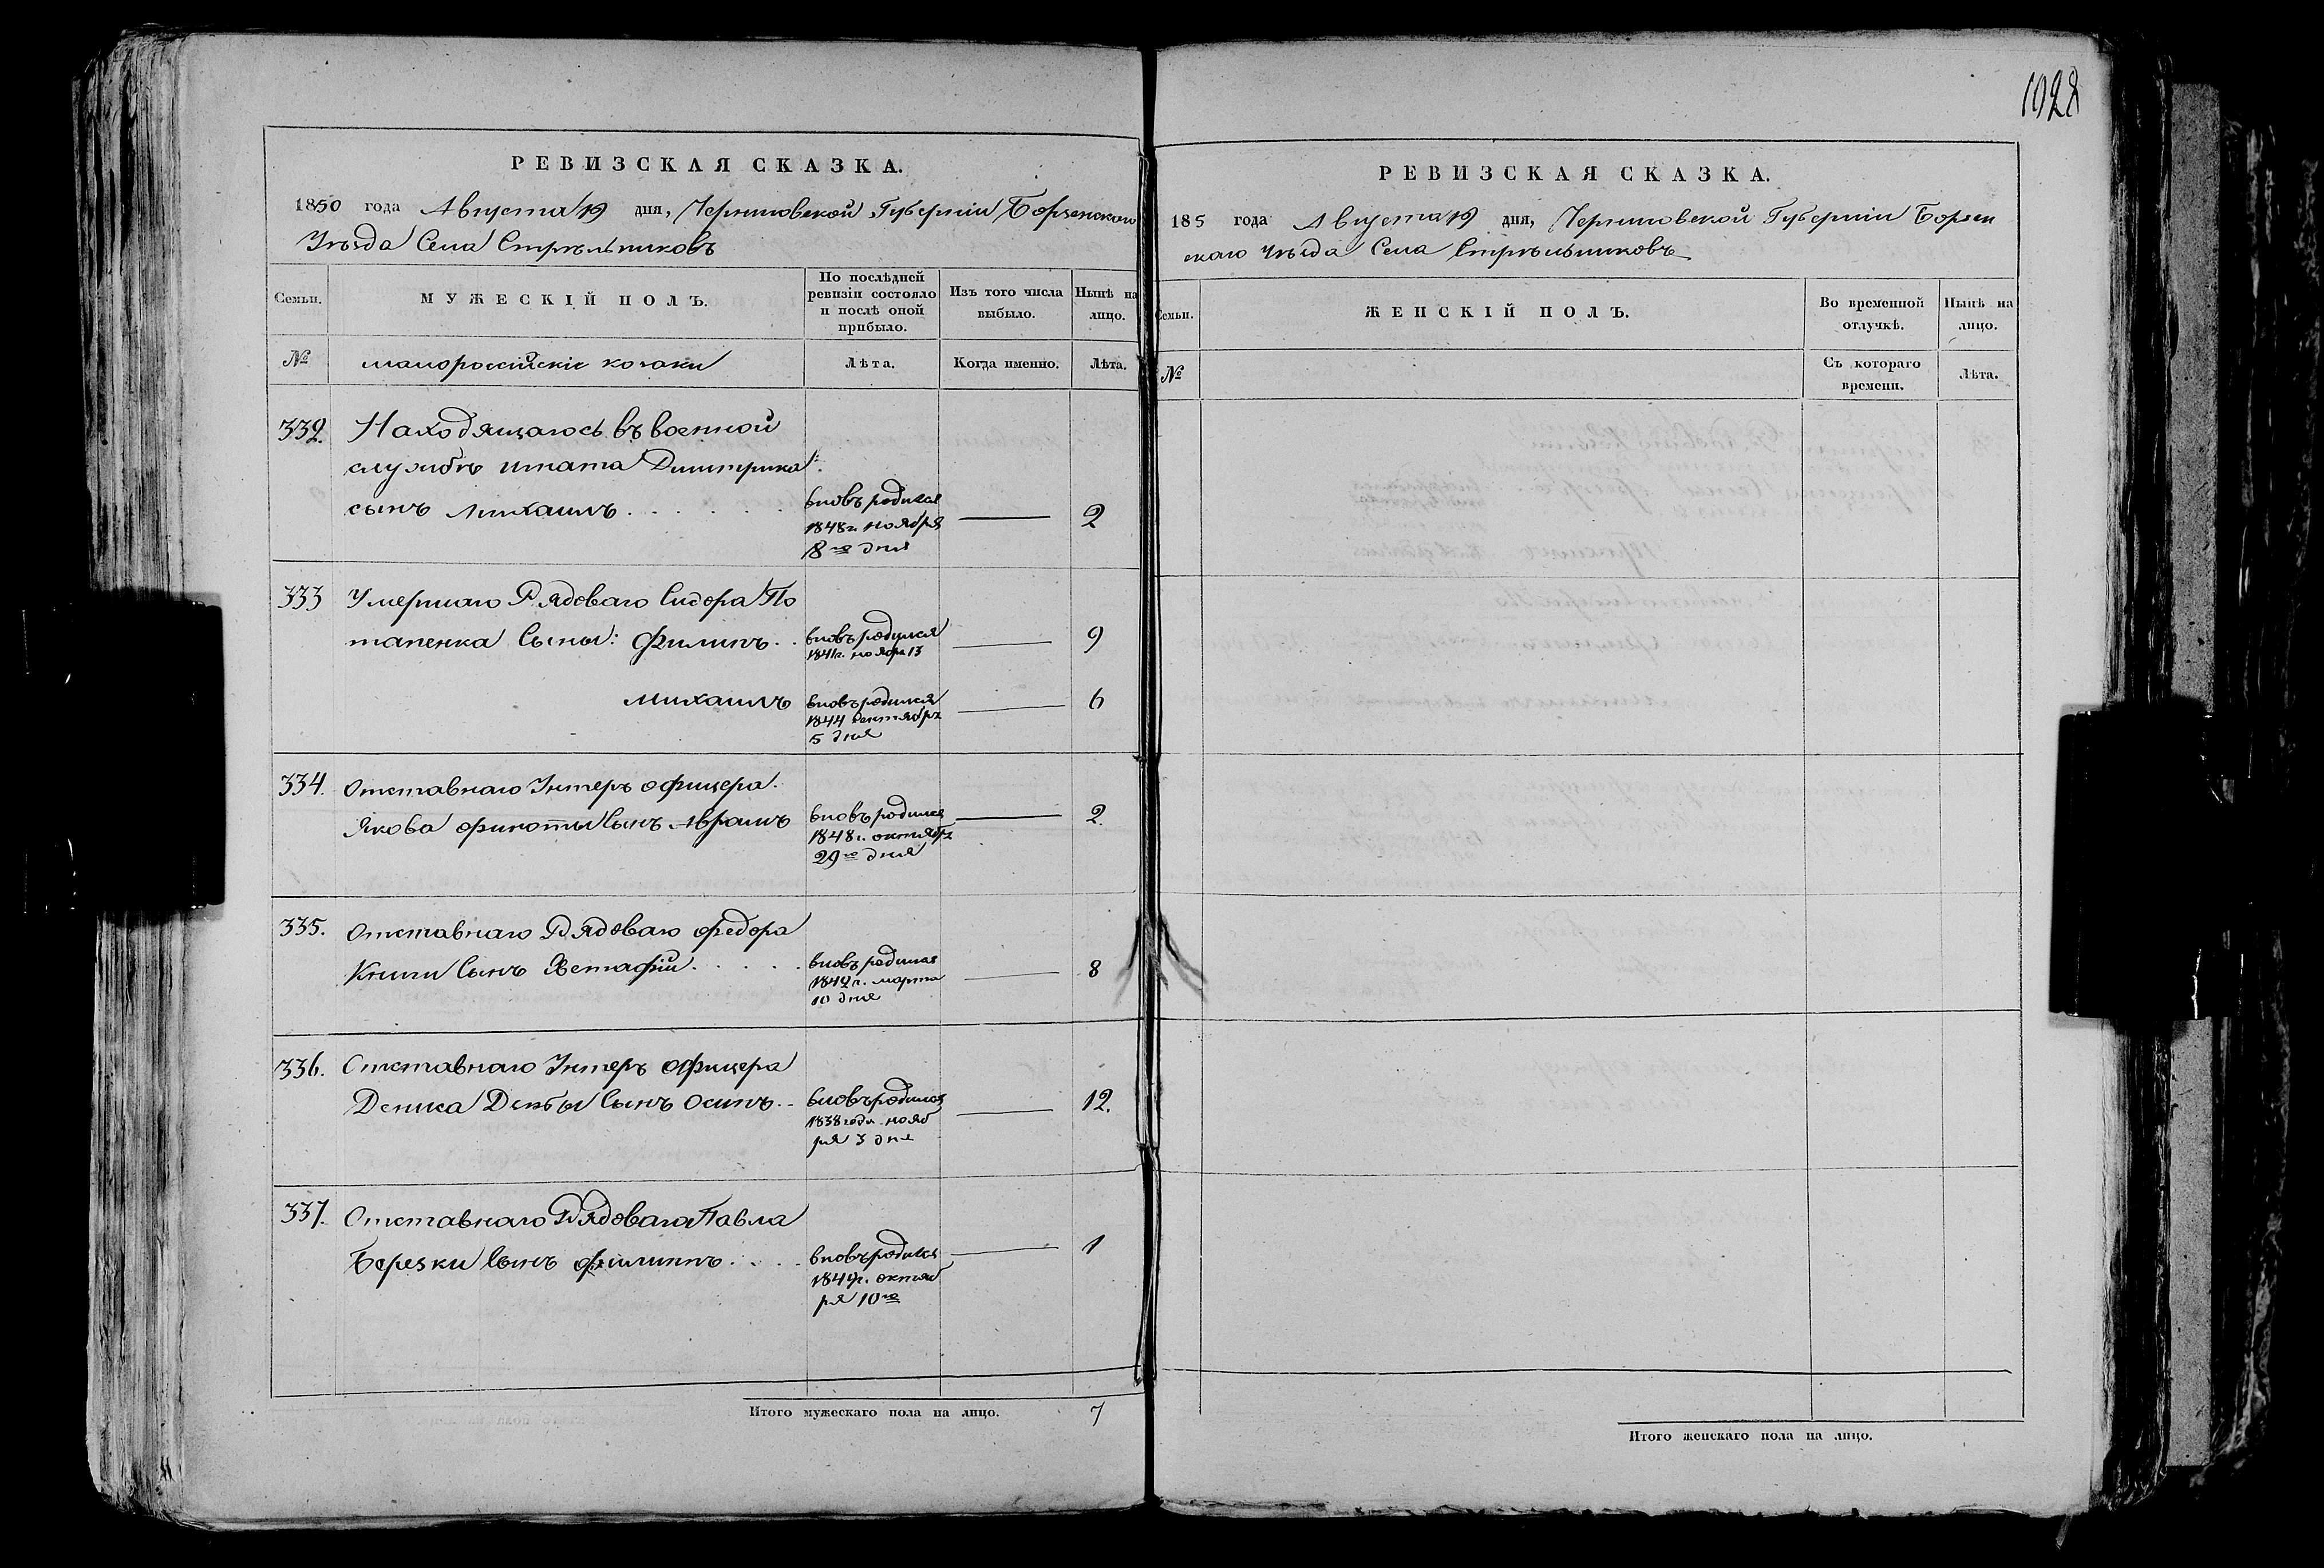 1028
РЕВИЗСКАЯ СКАЗКА.
1850 года Августа 19 дня, Черниговской Губерніи Борзенскаго
Уѣзда Села Стрѣльниковъ
Семьи.
МУЖЕСКІЙ ПОЛЪ.
По послѣдней ревизіи состояло и послѣ оной прибыло.
Изъ того числа выбыло.
Нынѣ на лицо.
№
малороссійскіе козаки
Лѣта.
Когда именно.
Лѣта.
332. Находящагось въ военной
службѣ Дмитрика
сынъ Михаилъ вновь родился 2
1848 г. ноября
8го дня
333 Умершаго Рядоваго Сидора По
тапенка Сыны: Филипъ вновь родился 9
1841 г. ноября 13
Михаилъ вновь родился 6
1844 сентября
5 дня
334. Отставнаго Унтеръ офицера
Якова Финоты Сынъ Аврамъ вновь родился 2.
1848 г. октября
29го дня
335. Отставнаго Рядоваго Федора
Книги Сынъ Евстафій вновь родился 8
1842 г. марта
10 дня
336. Отставнаго Унтеръ Офицера
Дениса Сынъ Осипъ вновь родился 12.
1838 года нояб
ря 3 дня
337. Отставнаго Рядоваго Павла
Березки Сынъ Филиппъ вновь родился 1
1849 г. октяб
ря 10го
Итого мужескаго пола на лицо. 7
РЕВИЗСКАЯ СКАЗКА.
185 года Августа 19 дня, Черниговской Губерніи Борзен
скаго Уѣзда Села Стрѣльниковъ
Семьи.
ЖЕНСКІЙ ПОЛЪ.
Во временной отлучкѣ.
Нынѣ на лицо.
№
Съ котораго времени.
Лѣта.
Итого женскаго пола на лицо.